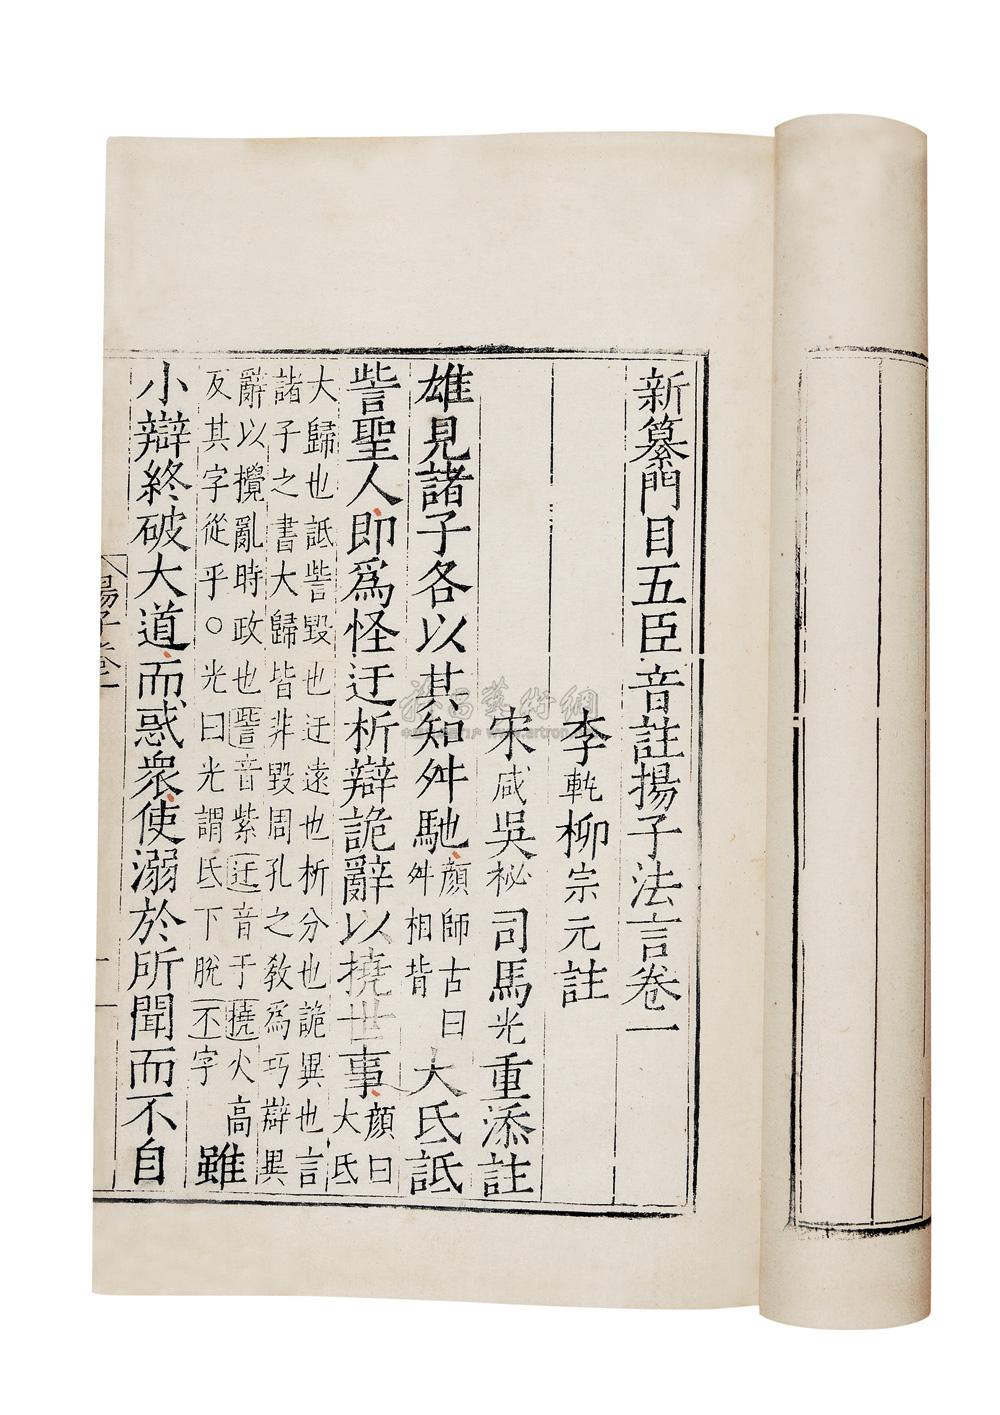 新纂門目五臣音註揚子法言卷一
李軏柳宗元註
宋咸吳祕司馬光重添註
雄見諸子各以其知舛馳顏師古曰
舛相背大氐詆
訾聖人即爲怪迂析辯詭辭以撓世事顏曰
大氐
大歸也詆訾毀也迂遠也析分也詭異也言
諸子之書大歸皆非毀周孔之教爲巧辯異
辭以攪亂時政也訾音紫迂音于撓火高
反其字從乎○光曰光謂氐下脫不字雖
小辯終破大道而惑衆使溺於所聞而不自
揚子卷一
一
雅昌藝術網
www.artron.net